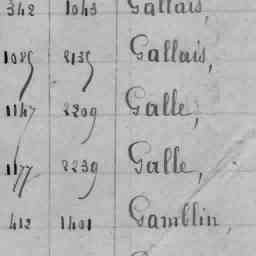 342 1043 Gallais,
1089 2139 Gallais,
1147 2209 Galle,
1177 2239 Galle,
412 1401 Gamblin,